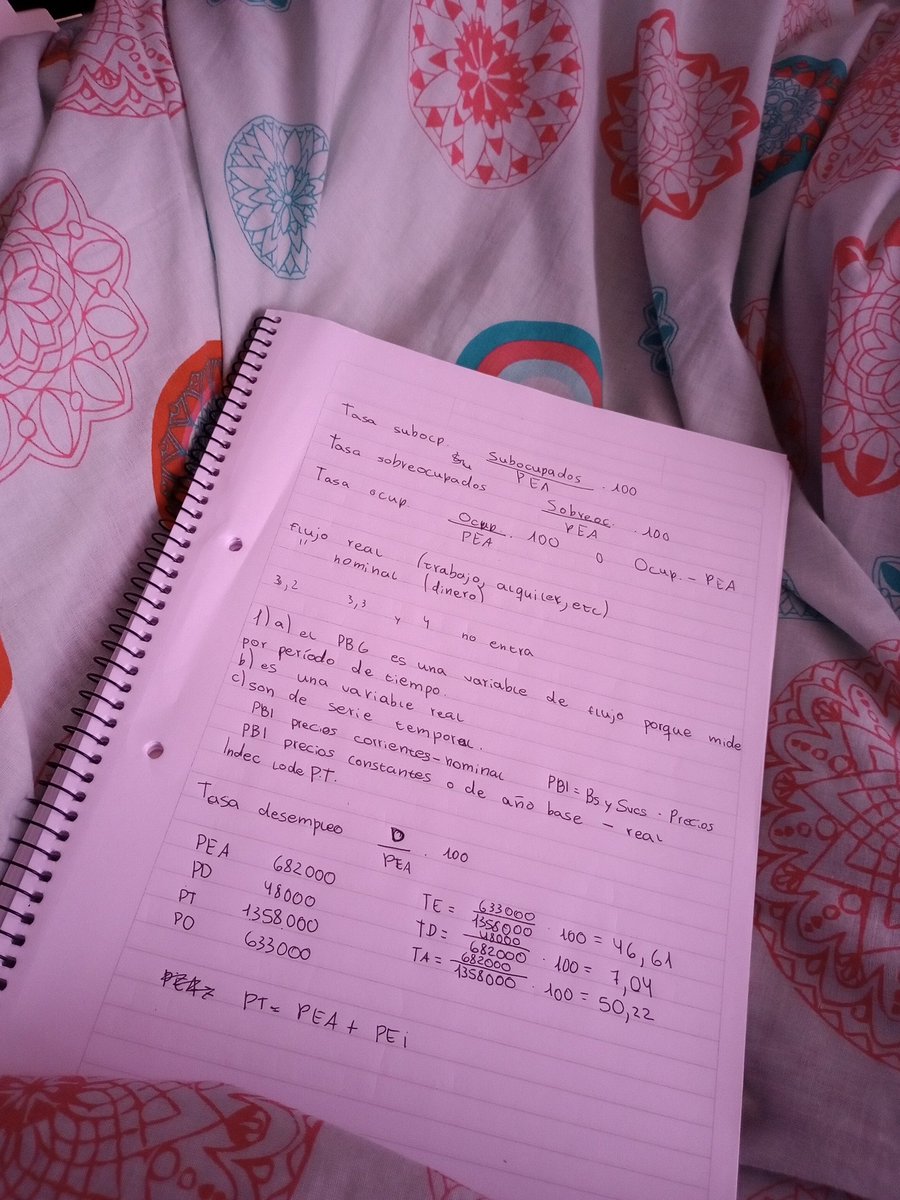 Tasa subocp. Subocupados / PEA . 100
Tasa sobreocupados Sobreoc. / PEA . 100
Tasa ocup. Ocup. / PEA . 100 o Ocup. - PEA
flujo real (trabajo, alquiler, etc)
" nominal (dinero)
3,2 3,3 y 4 no entra
1) a) el PBG es una variable de flujo porque mide
por período de tiempo.
b) es una variable real
c) son de serie temporal.
PBI precios corrientes - nominal PBI = Bs y Svcs . Precios
PBI precios constantes o de año base - real
Indec P.T.
Tasa desempleo D / PEA . 100
PEA 682000
PD 48000
PT 1358.000
PO 633000
TE = 633000 / 1358000 . 100 = 46,61
TD = 48000 / 682000 . 100 = 7,04
TA = 682000 / 1358000 . 100 = 50,22
PT = PEA + PEi